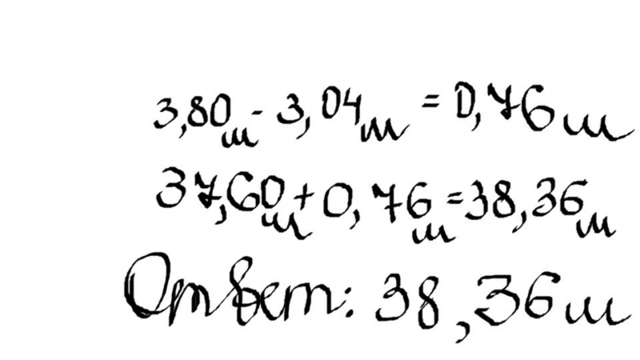 3,80м - 3,04м = 0,76м
37,60м + 0,76м = 38,36м
Ответ: 38,36м